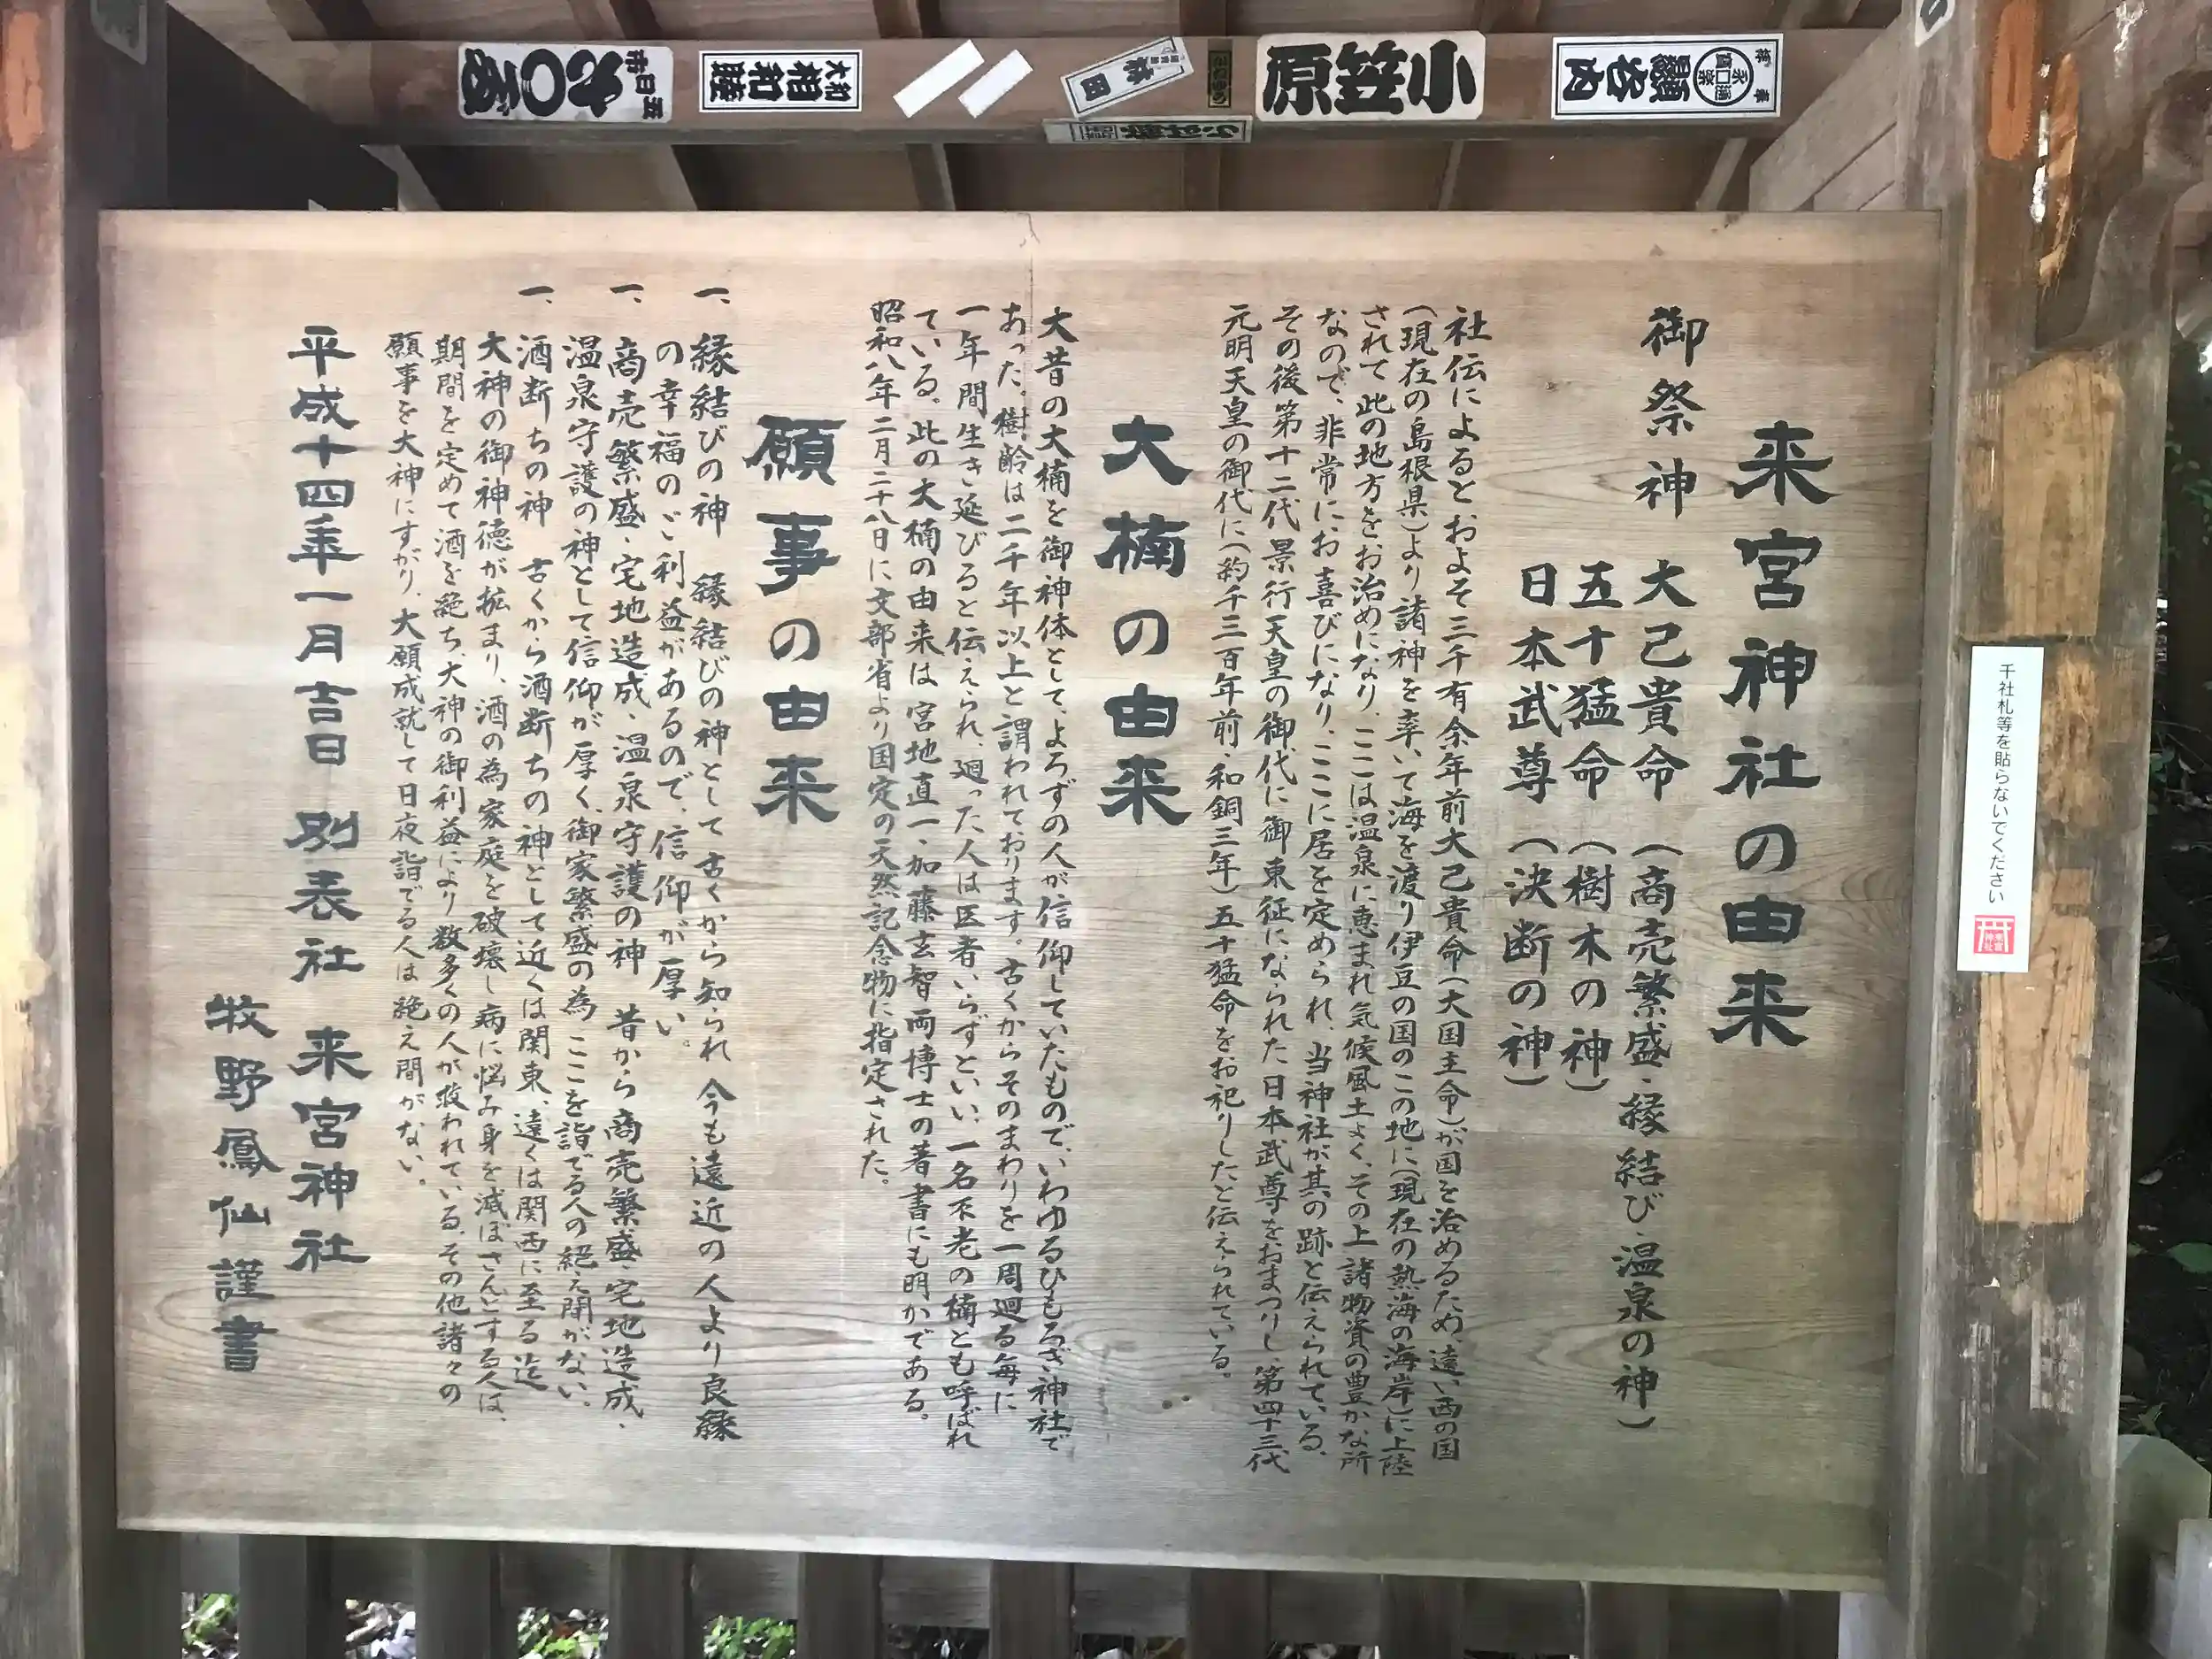 来宮神社の由来
御祭神 大己貴命 (商売繁盛・縁結び・温泉の神)
五十猛命 (樹木の神)
日本武尊 (決断の神)
社伝によるとおよそ三千有余年前大己貴命(大国主命)が国を治めるため、遠い西の国
(現在の島根県)より諸神を率いて海を渡り伊豆の国のこの地に(現在の熱海の海岸)に上陸
されて此の地方をお治めになり、ここは温泉に恵まれ気候風土よく、その上諸物資の豊かな所
なので、非常にお喜びになり、ここに居を定められ、当神社が其の跡と伝えられている。
その後第十二代景行天皇の御代に御東征になられた日本武尊をおまつりし、第四十三代
元明天皇の御代に(約千三百年前・和銅三年)五十猛命をお祀りしたと伝えられている。
大楠の由来
大昔の大楠を御神体として、よろずの人が信仰していたもので、いわゆるひもろぎ神社で
あった。樹齢は二千年以上と謂われております。古くからそのまわりを一周廻る毎に
一年間生き延びると伝えられ、廻った人は医者いらずといい、一名不老の楠とも呼ばれ
ている。此の大楠の由来は宮地直一、加藤玄智両博士の著書にも明かである。
昭和八年二月二十八日に文部省より国定の天然記念物に指定された。
願事の由来
一、縁結びの神 縁結びの神として古くから知られ 今も遠近の人より良縁
の幸福のご利益があるので、信仰が厚い。
一、商売繁盛・宅地造成・温泉守護の神 昔から商売繁盛・宅地造成・
温泉守護の神として信仰が厚く、御家繁盛の為 ここを詣でる人の絶え間がない。
一、酒断ちの神 古くから酒断ちの神として近くは関東、遠くは関西に至る迄
大神の御神徳が拡まり、酒の為家庭を破壊し病に悩み身を滅ぼさんとする人は、
期間を定めて酒を絶ち、大神の御利益により数多くの人が救われている。その他諸々の
願事を大神にすがり、大願成就して日夜詣でる人は絶え間がない。
平成十四年一月吉日 別表社 来宮神社
牧野鳳仙謹書
千社札等を貼らないでください
来宮神社
小笠原
大和 相和睦